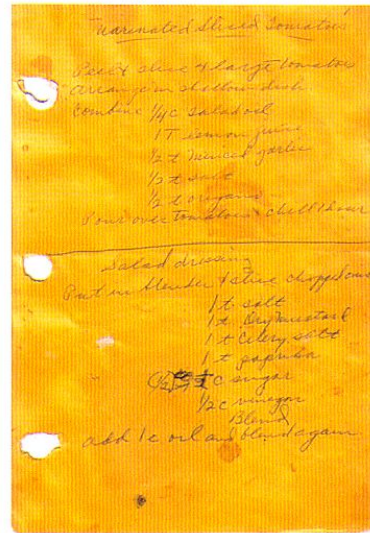 Marinated Sliced Tomatoes
Peel & slice 4 large tomatoes
arrange in shallow dish
Combine 1/4 c salad oil
1 T lemon juice
1/2 t minced garlic
1/2 t salt
1/2 t oregano
Pour over tomatoes & chill 1 hour
Salad dressing
Put in blender & stir chopped onion
1 t salt
1 t Dry mustard
1 t Celery salt
1 t paprika
c sugar
1/2 c vinegar
Blend
add 1 c oil and blend again